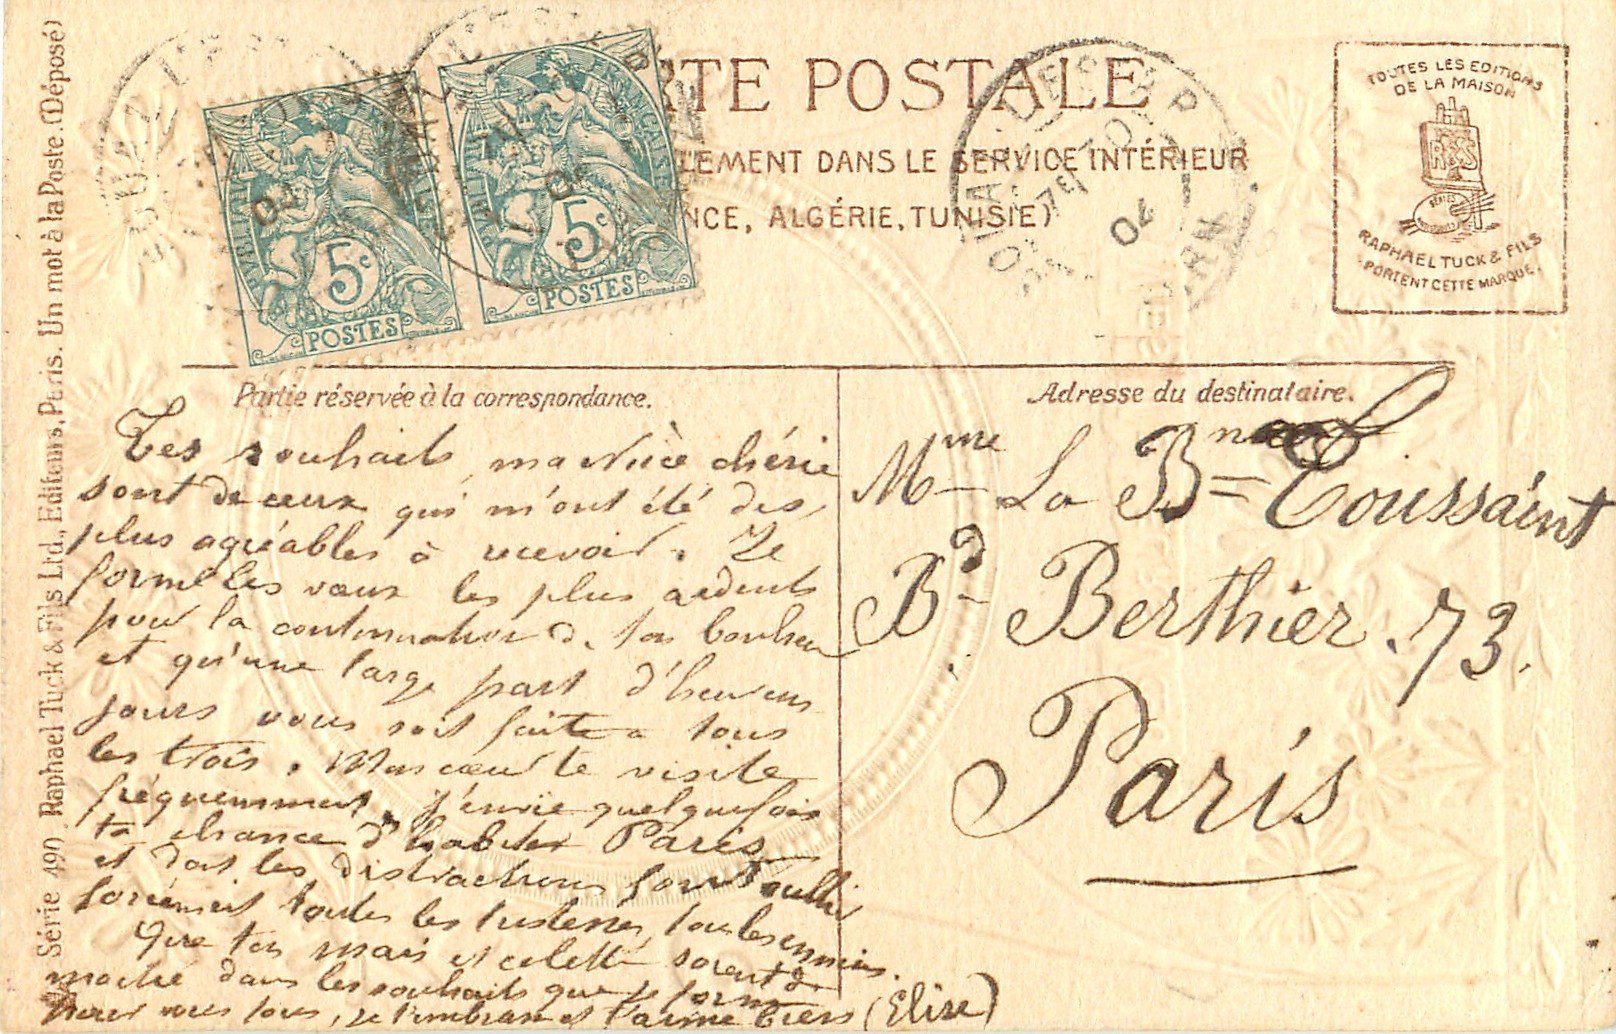 CARTE POSTALE
LEMENT DANS LE SERVICE INTÉRIEUR
NCE, ALGÉRIE, TUNISIE)
5c
POSTES
5c
POSTES
TOUTES LES EDITIONS
DE LA MAISON
R&S
RAPHAEL TUCK & FILS
PORTENT CETTE MARQUE.
Série 490. Raphael Tuck & Fils Ltd., Editeurs, Paris. Un mot à la Poste. (Déposé)
Partie réservée à la correspondance.
Tes souhaits, ma Nièce chérie
sont de ceux qui m'ont été des
plus agréables à recevoir. Je
forme les vœux les plus ardents
pour la continuation de ton bonheur
et qu'une large part d'heureux
jours vous soit faite à tous
les trois. Mon cœur te visite
fréquemment, j'envie quelquefois
ta chance d'habiter Paris
et dont les distractions font oublier
forcément toutes les tristesses, tous les ennuis.
Que ton mari et celette soient de
moitié dans les souhaits que je forme
pour vous tous, je t'embrasse et t'aime bien (Elise)
Adresse du destinataire.
Mme La Bnne Toussaint
Bd Berthier. 73.
Paris